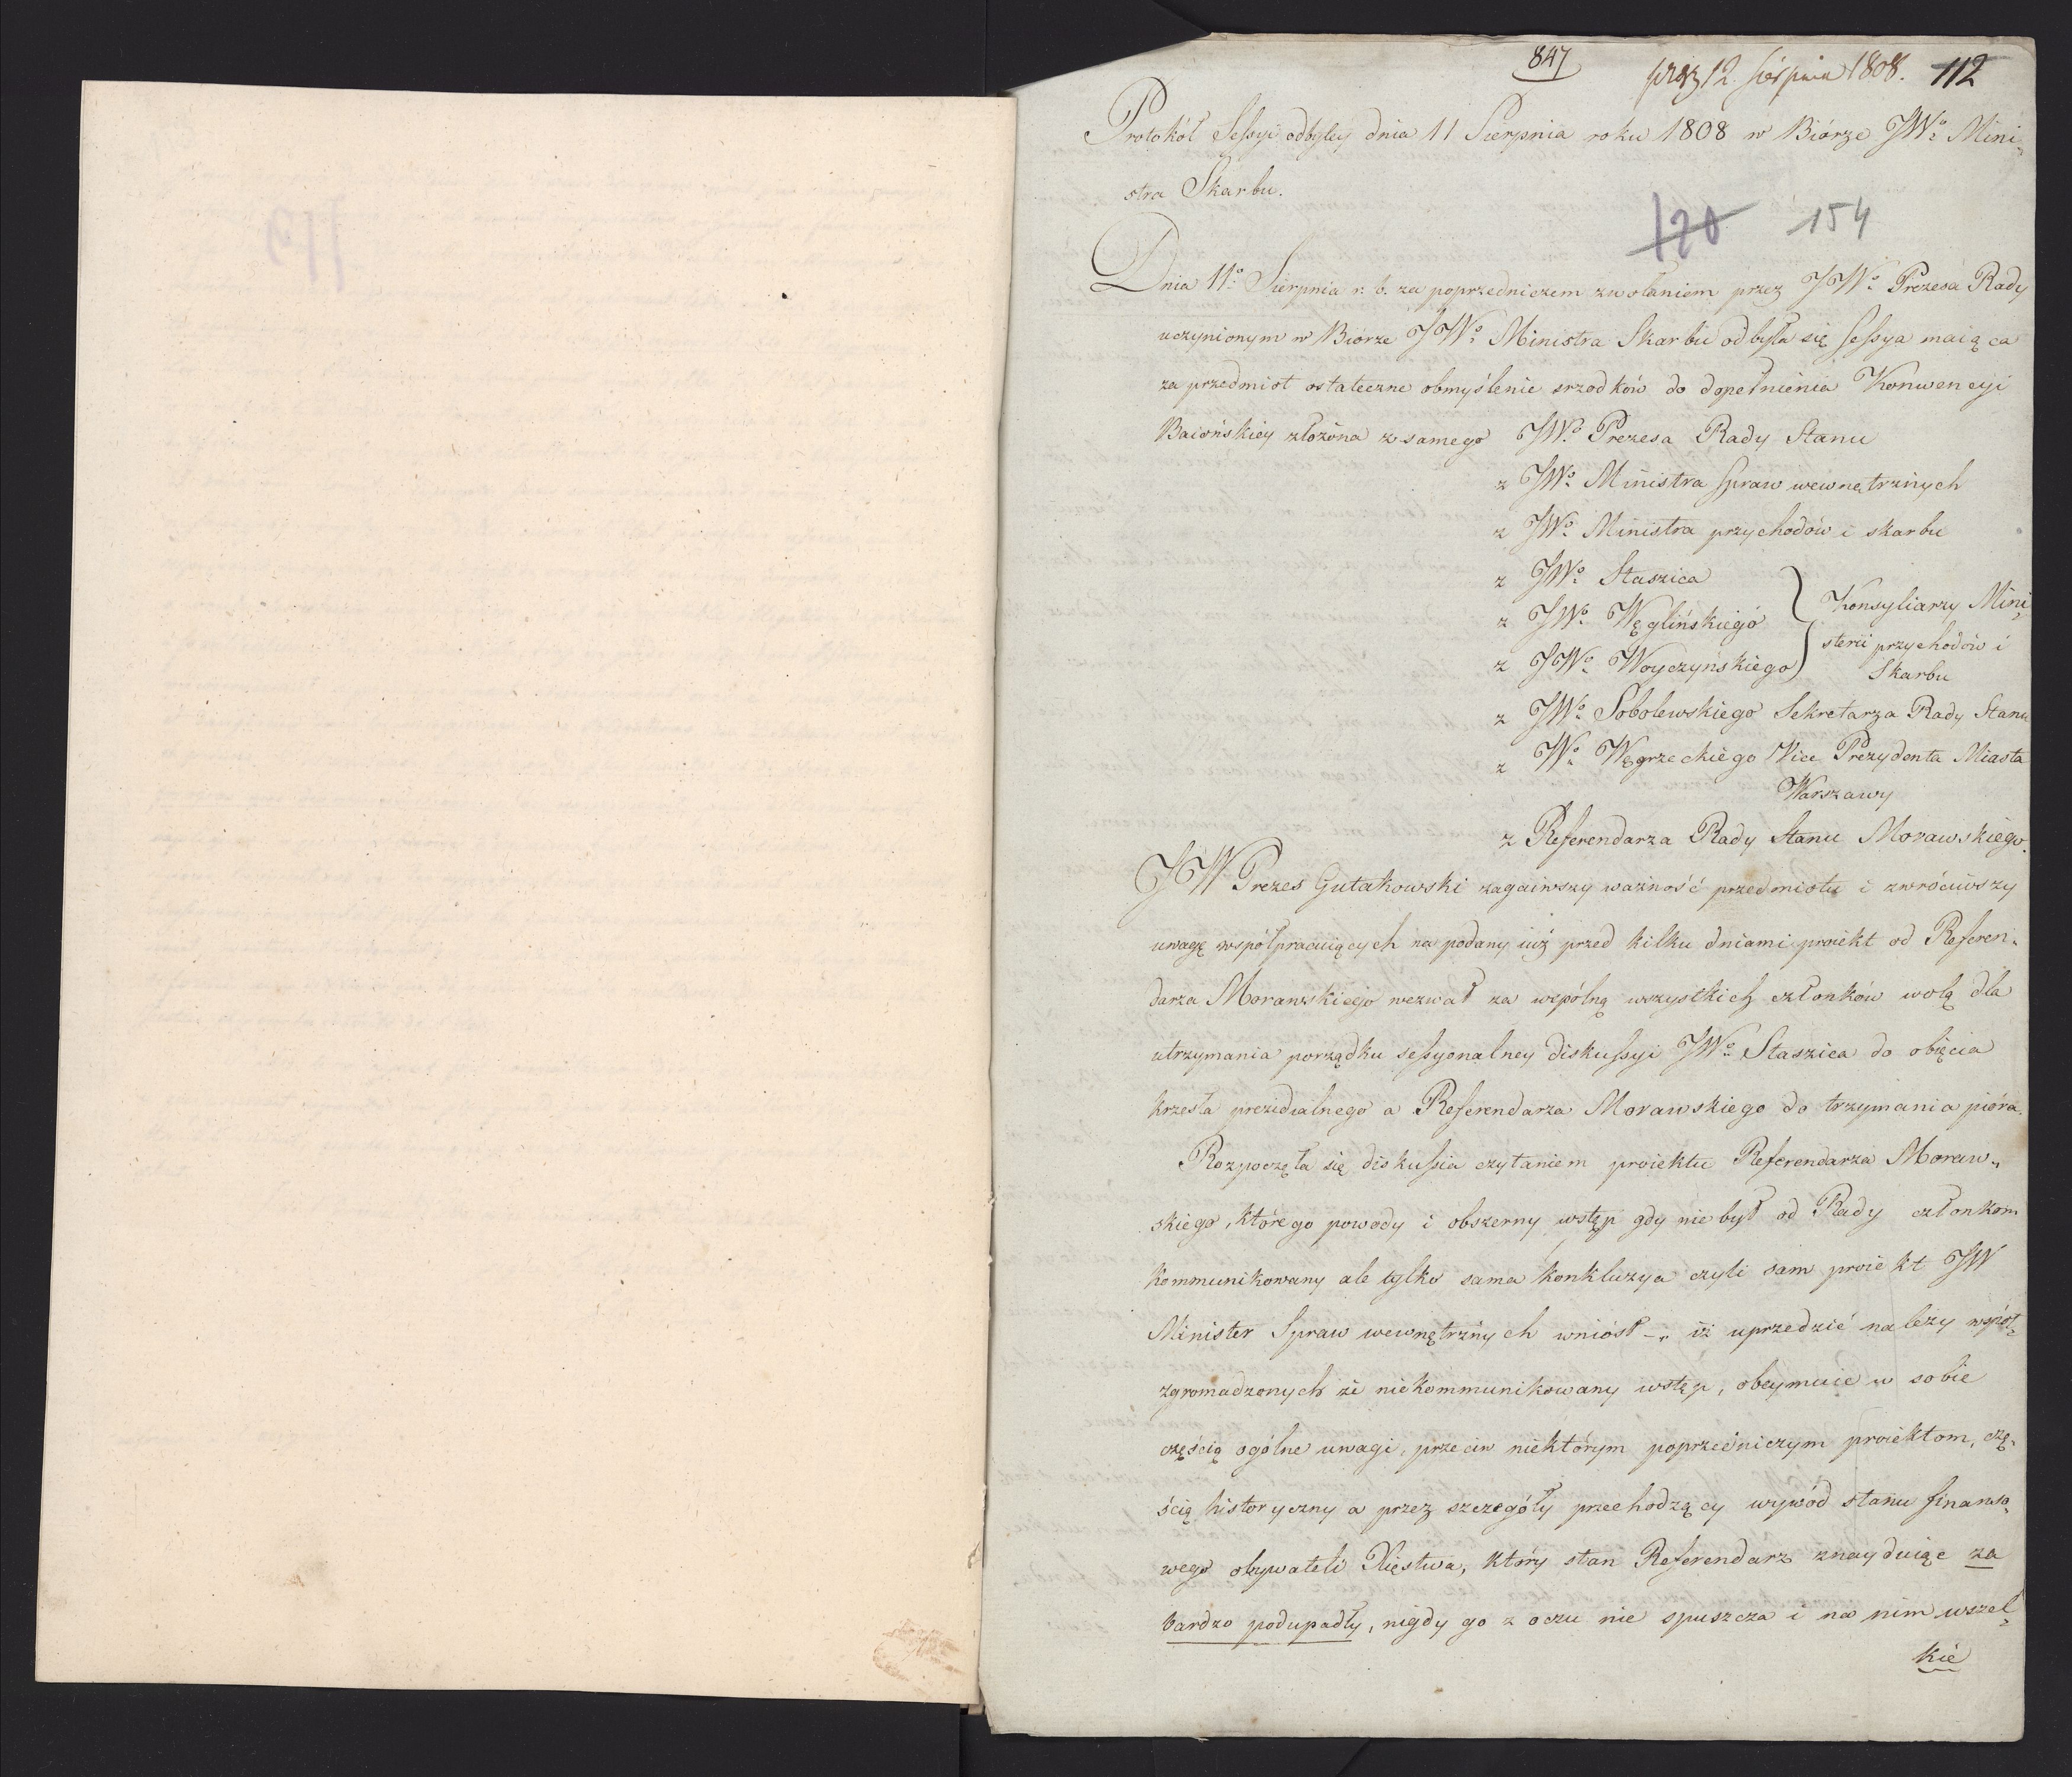 847
prez 12 Sierpnia 1808. 112
Protokół Sessyi odbytey dnia 11 Sierpnia roku 1808 w Biórze JWo Mini„
stra Skarbu.
120 154
Dnia 11o Sierpnia r. b. za poprzedniczem zwołaniem przez JWo Prezesa Rady
uczynionym w Biorze JWo Ministra Skarbu odbyła się sessya maiąca
za przedmiot ostateczne obmyślenie srzodków do dopełnienia Konwencyi
Baiońskiey złożona z samego JWo Prezesa Rady Stanu
z JWo Ministra Spraw wewnętrznych
z JWo Ministra przychodów i skarbu
z JWo Staszica
z JWo Węglińskiego
z JWo Woyczyńskiego
Konsyliarzy Mini„
sterii przychodów i
Skarbu
z JWo Sobolewskiego Sekretarza Rady Stanu
z Wo Węgrzeckiego Vice Prezydenta Miasta
Warszawy
z Referendarza Rady Stanu Morawskiego.
JW Prezes Gutakowski zagaiwszy ważność przedmiotu i zwróciwszy
uwagę współpracuiących na podany iuż przed kilku dniami proiekt od Referen„
darza Morawskiego wezwał za wspólną wszystkich członków wolą dla
utrzymania porządku sessyonalney diskussyi JWo Staszica do obięcia
krzesła prezidialnego a Referendarza Morawskiego do trzymania pióra.
Rozpoczęła się diskussia czytaniem proiektu Referendarza Moraw„
skiego, którego powody i obszerny wstęp gdy nie był od Rady członkom
kommunikowany ale tylko sama konkluzya czyli sam proiekt JW
Minister Spraw wewnętrznych wniósł –„ iż uprzedzić należy współ„
zgromadzonych że niekommunikowany wstęp, obeymuie w sobie
częścią ogólne uwagi, przeciw niektórym poprzedniczym proiektom, czę„
ścią historyczny a przez szczegóły przechodzący wywód stanu finanso„
wego obywateli Xięstwa, który stan Referendarz znayduiąc za
bardzo podupadły, nigdy go z oczu nie spuszcza i na nim wszel„
kie